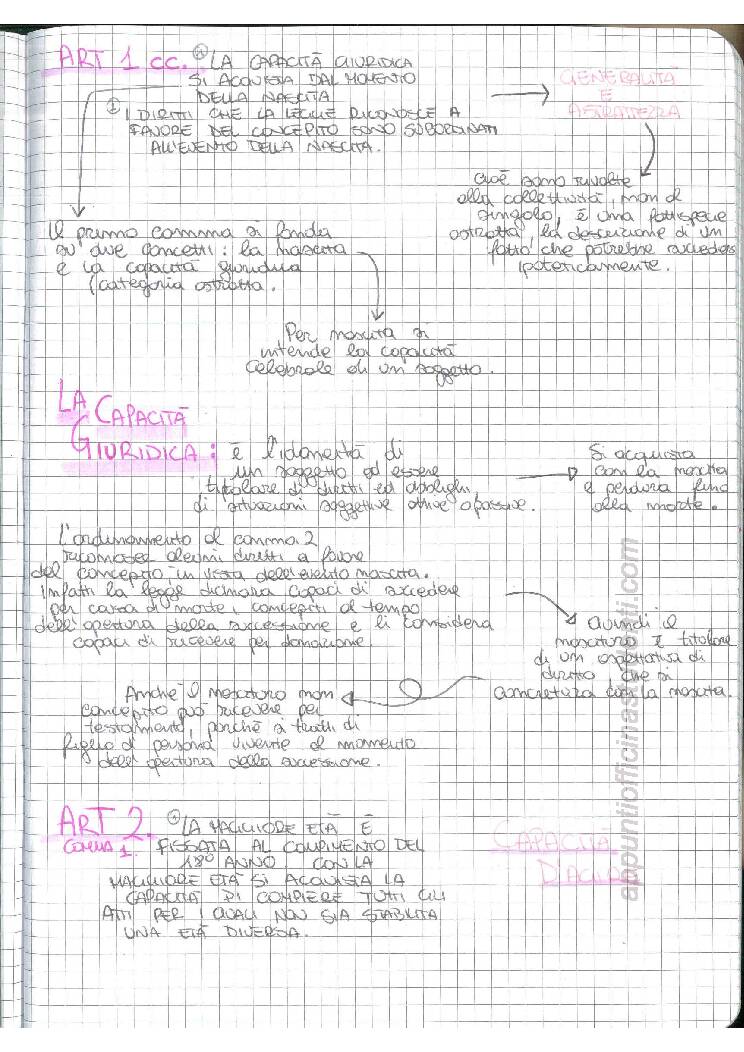 ART 1 CC. ① LA CAPACITÀ GIURIDICA
SI ACQUISTA DAL MOMENTO
DELLA NASCITA
② I DIRITTI CHE LA LEGGE RICONOSCE A
FAVORE DEL CONCEPITO SONO SUBORDINATI
ALL'EVENTO DELLA NASCITA.
GENERALITÀ
E
ASTRATTEZZA
cioè sono rivolte
alla collettività, non al
singolo, è una fattispecie
astratta, la descrizione di un
fatto che potrebbe succedere
ipoteticamente.
Il primo comma si fonda
su due concetti: la nascita
e la capacità giuridica
(categoria astratta.
Per nascita si
intende la capacità
celebrale di un soggetto.
LA CAPACITÀ
GIURIDICA: è l'idoneità di
un soggetto ad essere
titolare di diritti ed obblighi
di situazioni soggettive attive o passive.
Si acquista
con la nascita
e perdura fino
alla morte.
L'ordinamento al comma 2
riconosce alcuni diritti a favore
del concepito in vista dell'evento nascita.
Infatti la legge dichiara capaci di succedere
per causa di morte i concepiti al tempo
dell'apertura della successione e li considera
capaci di ricevere per donazione
Quindi il
nascituro è titolare
di un aspettativa di
diritto che si
concretizza con la nascita.
Anche il nascituro non
concepito può ricevere per
testamento, perché si tratti di
figlio di persona vivente al momento
dell'apertura della successione.
ART 2. ① LA MAGGIORE ETÀ È
COMMA 1. FISSATA AL COMPIMENTO DEL
18º ANNO CON LA
MAGGIORE ETÀ SI ACQUISTA LA
CAPACITÀ DI COMPIERE TUTTI GLI
ATTI PER I QUALI NON SIA STABILITA
UNA ETÀ DIVERSA.
CAPACITÀ
D'AGIRE
appuntiofficinastudenti.com